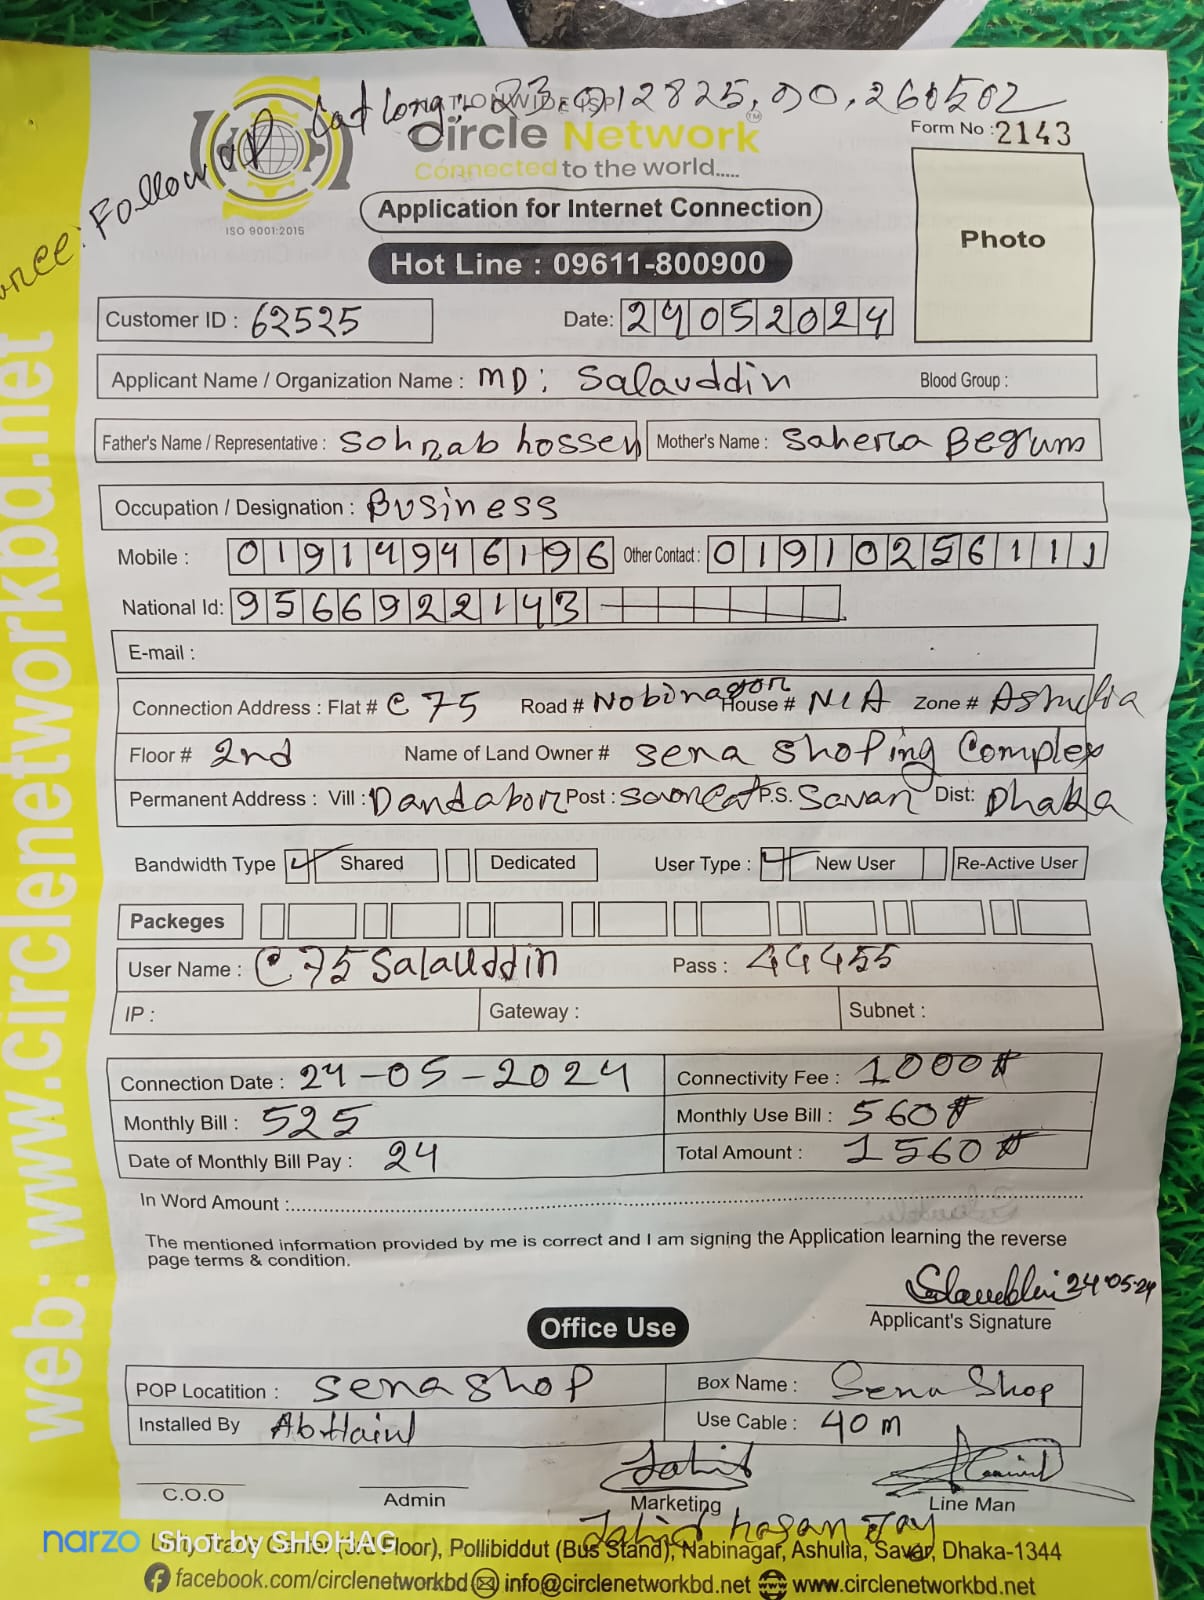 Lat Long:- 23.912825, 90.260502
NATIONWIDE ISP
Circle Network TM
Connected to the world.....
ISO 9001:2015
Follow up
Form No : 2143
Photo
Application for Internet Connection
Hot Line : 09611-800900
Customer ID : 62525 Date: 24052024
Applicant Name / Organization Name : MD: Salauddin Blood Group :
Father's Name / Representative : Sohrab hossen Mother's Name : Sahera Begum
Occupation / Designation : Business
Mobile : 01914946196 Other Contact : 01910256111
National Id: 9566922143
E-mail :
Connection Address : Flat # C 75 Road # Nobinagor House # N/A Zone # Ashulia
Floor # 2nd Name of Land Owner # Sena Shoping Complex
Permanent Address : Vill : Dandabor Post : P.S. Savar Dist: Dhaka
Bandwidth Type Shared Dedicated User Type : New User Re-Active User
Packeges
User Name : C75Salauddin Pass : 44455
IP : Gateway : Subnet :
Connection Date : 24-05-2024 Connectivity Fee : 1000
Monthly Bill : 525 Monthly Use Bill : 560
Date of Monthly Bill Pay : 24 Total Amount : 1560
In Word Amount :
The mentioned information provided by me is correct and I am signing the Application learning the reverse
page terms & condition.
24.05.24
Applicant's Signature
Office Use
POP Locatition : Sena Shop Box Name : Sena Shop
Installed By Use Cable : 40 m
C.O.O Admin Marketing Line Man
hasan Joy
Floor), Pollibiddut (Bus Stand), Nabinagar, Ashulia, Savar, Dhaka-1344
facebook.com/circlenetworkbd info@circlenetworkbd.net www.circlenetworkbd.net
web: www.circlenetworkbd.net
narzo Shot by SHOHAG